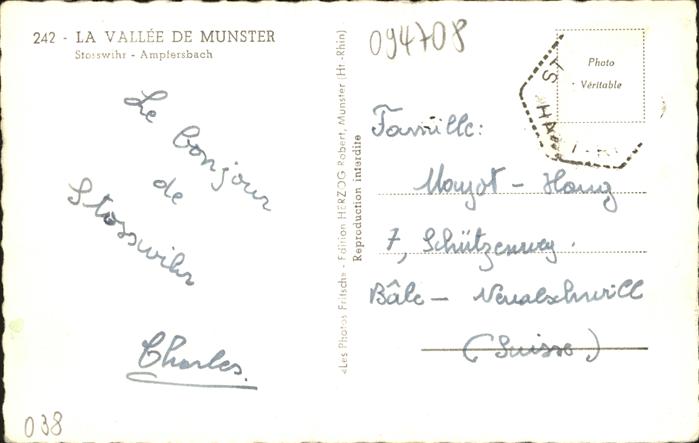 242 - LA VALLÉE DE MUNSTER
Stosswihr - Ampfersbach
094708
Photo
Véritable
ST
HA
Le bonjour
de
Stosswihr
Charles.
«Les Photos Fritsch» - Edition HERZOG Robert, Munster (Ht-Rhin)
Reproduction interdite
Famille:
7, Schützenweg.
Bâle - Neualschwill
(Suisse)
038